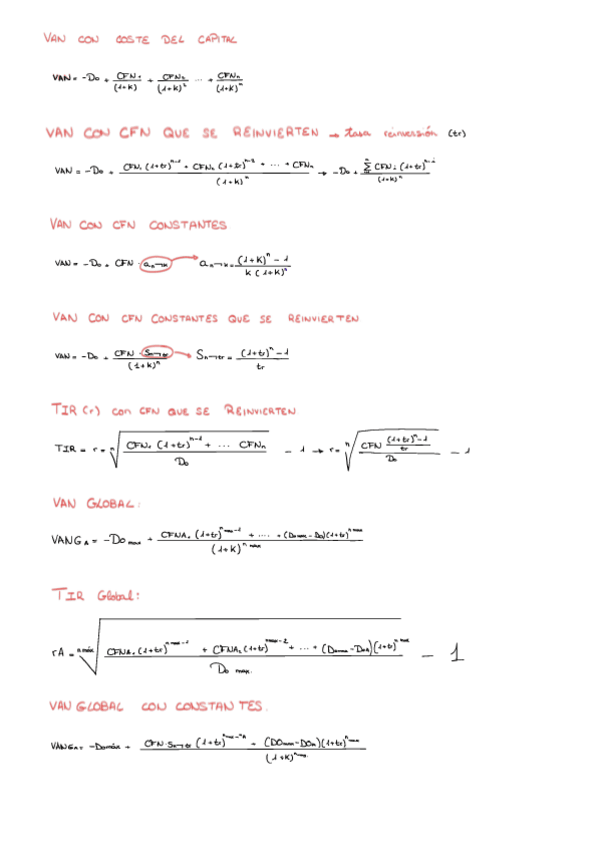 VAN CON COSTE DEL CAPITAL
VAN = -Do + CFN₁/(1+k) + CFN₂/(1+k)² ... + CFNn/(1+k)ⁿ
VAN CON CFN QUE SE REINVIERTEN → tasa reinversión (tr)
VAN = -Do + (CFN₁(1+tr)ⁿ⁻¹ + CFN₂(1+tr)ⁿ⁻² + ... + CFNn)/(1+k)ⁿ → -Do + Σ CFNi(1+tr)ⁿ⁻ⁱ/(1+k)ⁿ
VAN CON CFN CONSTANTES
VAN = -Do + CFN · an¬k → an¬k = ((1+k)ⁿ - 1)/(k(1+k)ⁿ)
VAN CON CFN CONSTANTES QUE SE REINVIERTEN
VAN = -Do + (CFN · Sn¬tr)/(1+k)ⁿ → Sn¬tr = ((1+tr)ⁿ - 1)/tr
TIR (r) con CFN QUE SE REINVIERTEN
TIR = r = ⁿ√((CFN₁(1+tr)ⁿ⁻¹ + ... CFNn)/Do) - 1 → r = ⁿ√((CFN ((1+tr)ⁿ - 1)/tr)/Do) - 1
VAN GLOBAL:
VANGA = -Do max + (CFNA₁(1+tr)^(nmax-1) + .... + (Domax - Do)(1+tr)^(nmax))/(1+k)^(nmáx)
TIR Global:
rA = nmáx√((CFNA₁(1+tr)^(nmax-1) + CFNA₂(1+tr)^(nmax-2) + ... + (Domax - DoA)(1+tr)^(nmax))/Do max.) - 1
VAN GLOBAL CON CONSTANTES.
VANGA = -Domáx + (CFN · Sn¬tr (1+tr)^(nmax-nA) + (DOmax - DOA)(1+tr)^(nmax))/(1+k)^(nmax)